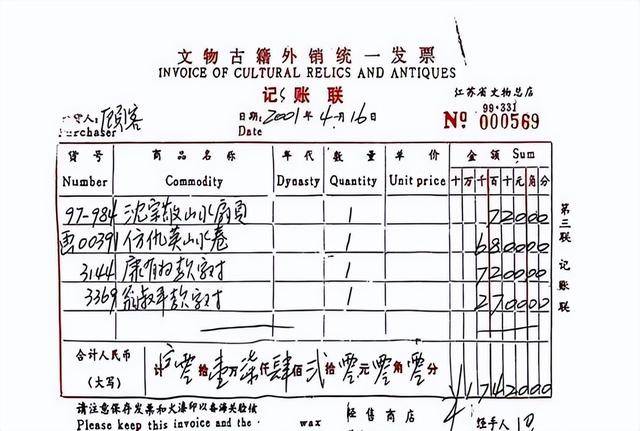 文物古籍外销统一发票
INVOICE OF CULTURAL RELICS AND ANTIQUES
记账联
江苏省文物总店
99·331
人: 顾客
Purchaser
日期: 2001年4月16日
Date
№ 000569
货号 商品名称 年代 数量 单价 金额 Sum
Number Commodity Dynasty Quantity Unit price 十万千百十元角分
97-984 沈宗敬山水扇页 1 72000
画00391 仿仇英山水卷 1 680000
3144 康有为款字对 1 720000
3369 翁叔平款字对 1 270000
合计人民币
(大写)
计 零拾壹万柒仟肆佰贰拾零元零角零分 ¥1742000
第三联 记账联
请注意保存发票和火漆印以备海关验核
Please keep this invoice and the wax
经售商店
经手人